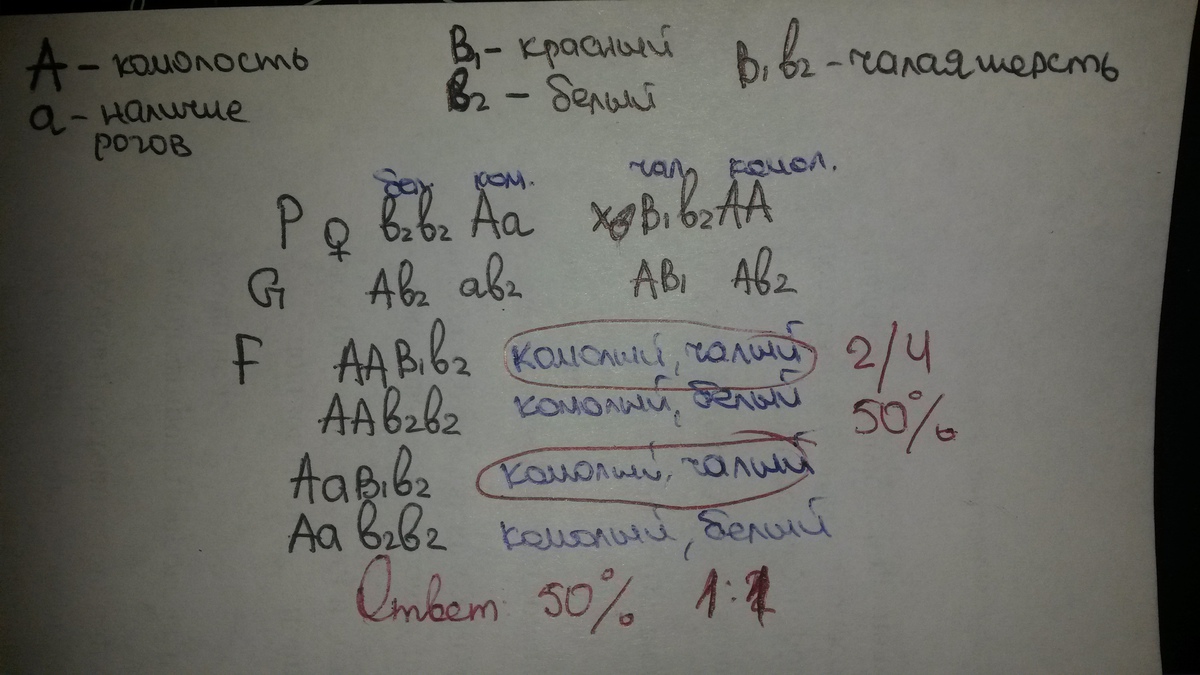 A - комолость B₁ - красный B₁b₂ - чалая шерсть
a - наличие рогов b₂ - белый
бел. ком. чал. комол.
P ♀ b₂b₂ Aa х B₁b₂AA
G Ab₂ ab₂ AB₁ Ab₂
F AAB₁b₂ комолый, чалый 2/4
AAb₂b₂ комолый, белый 50%
AaB₁b₂ комолый, чалый
Aa b₂b₂ комолый, белый
Ответ 50% 1:1